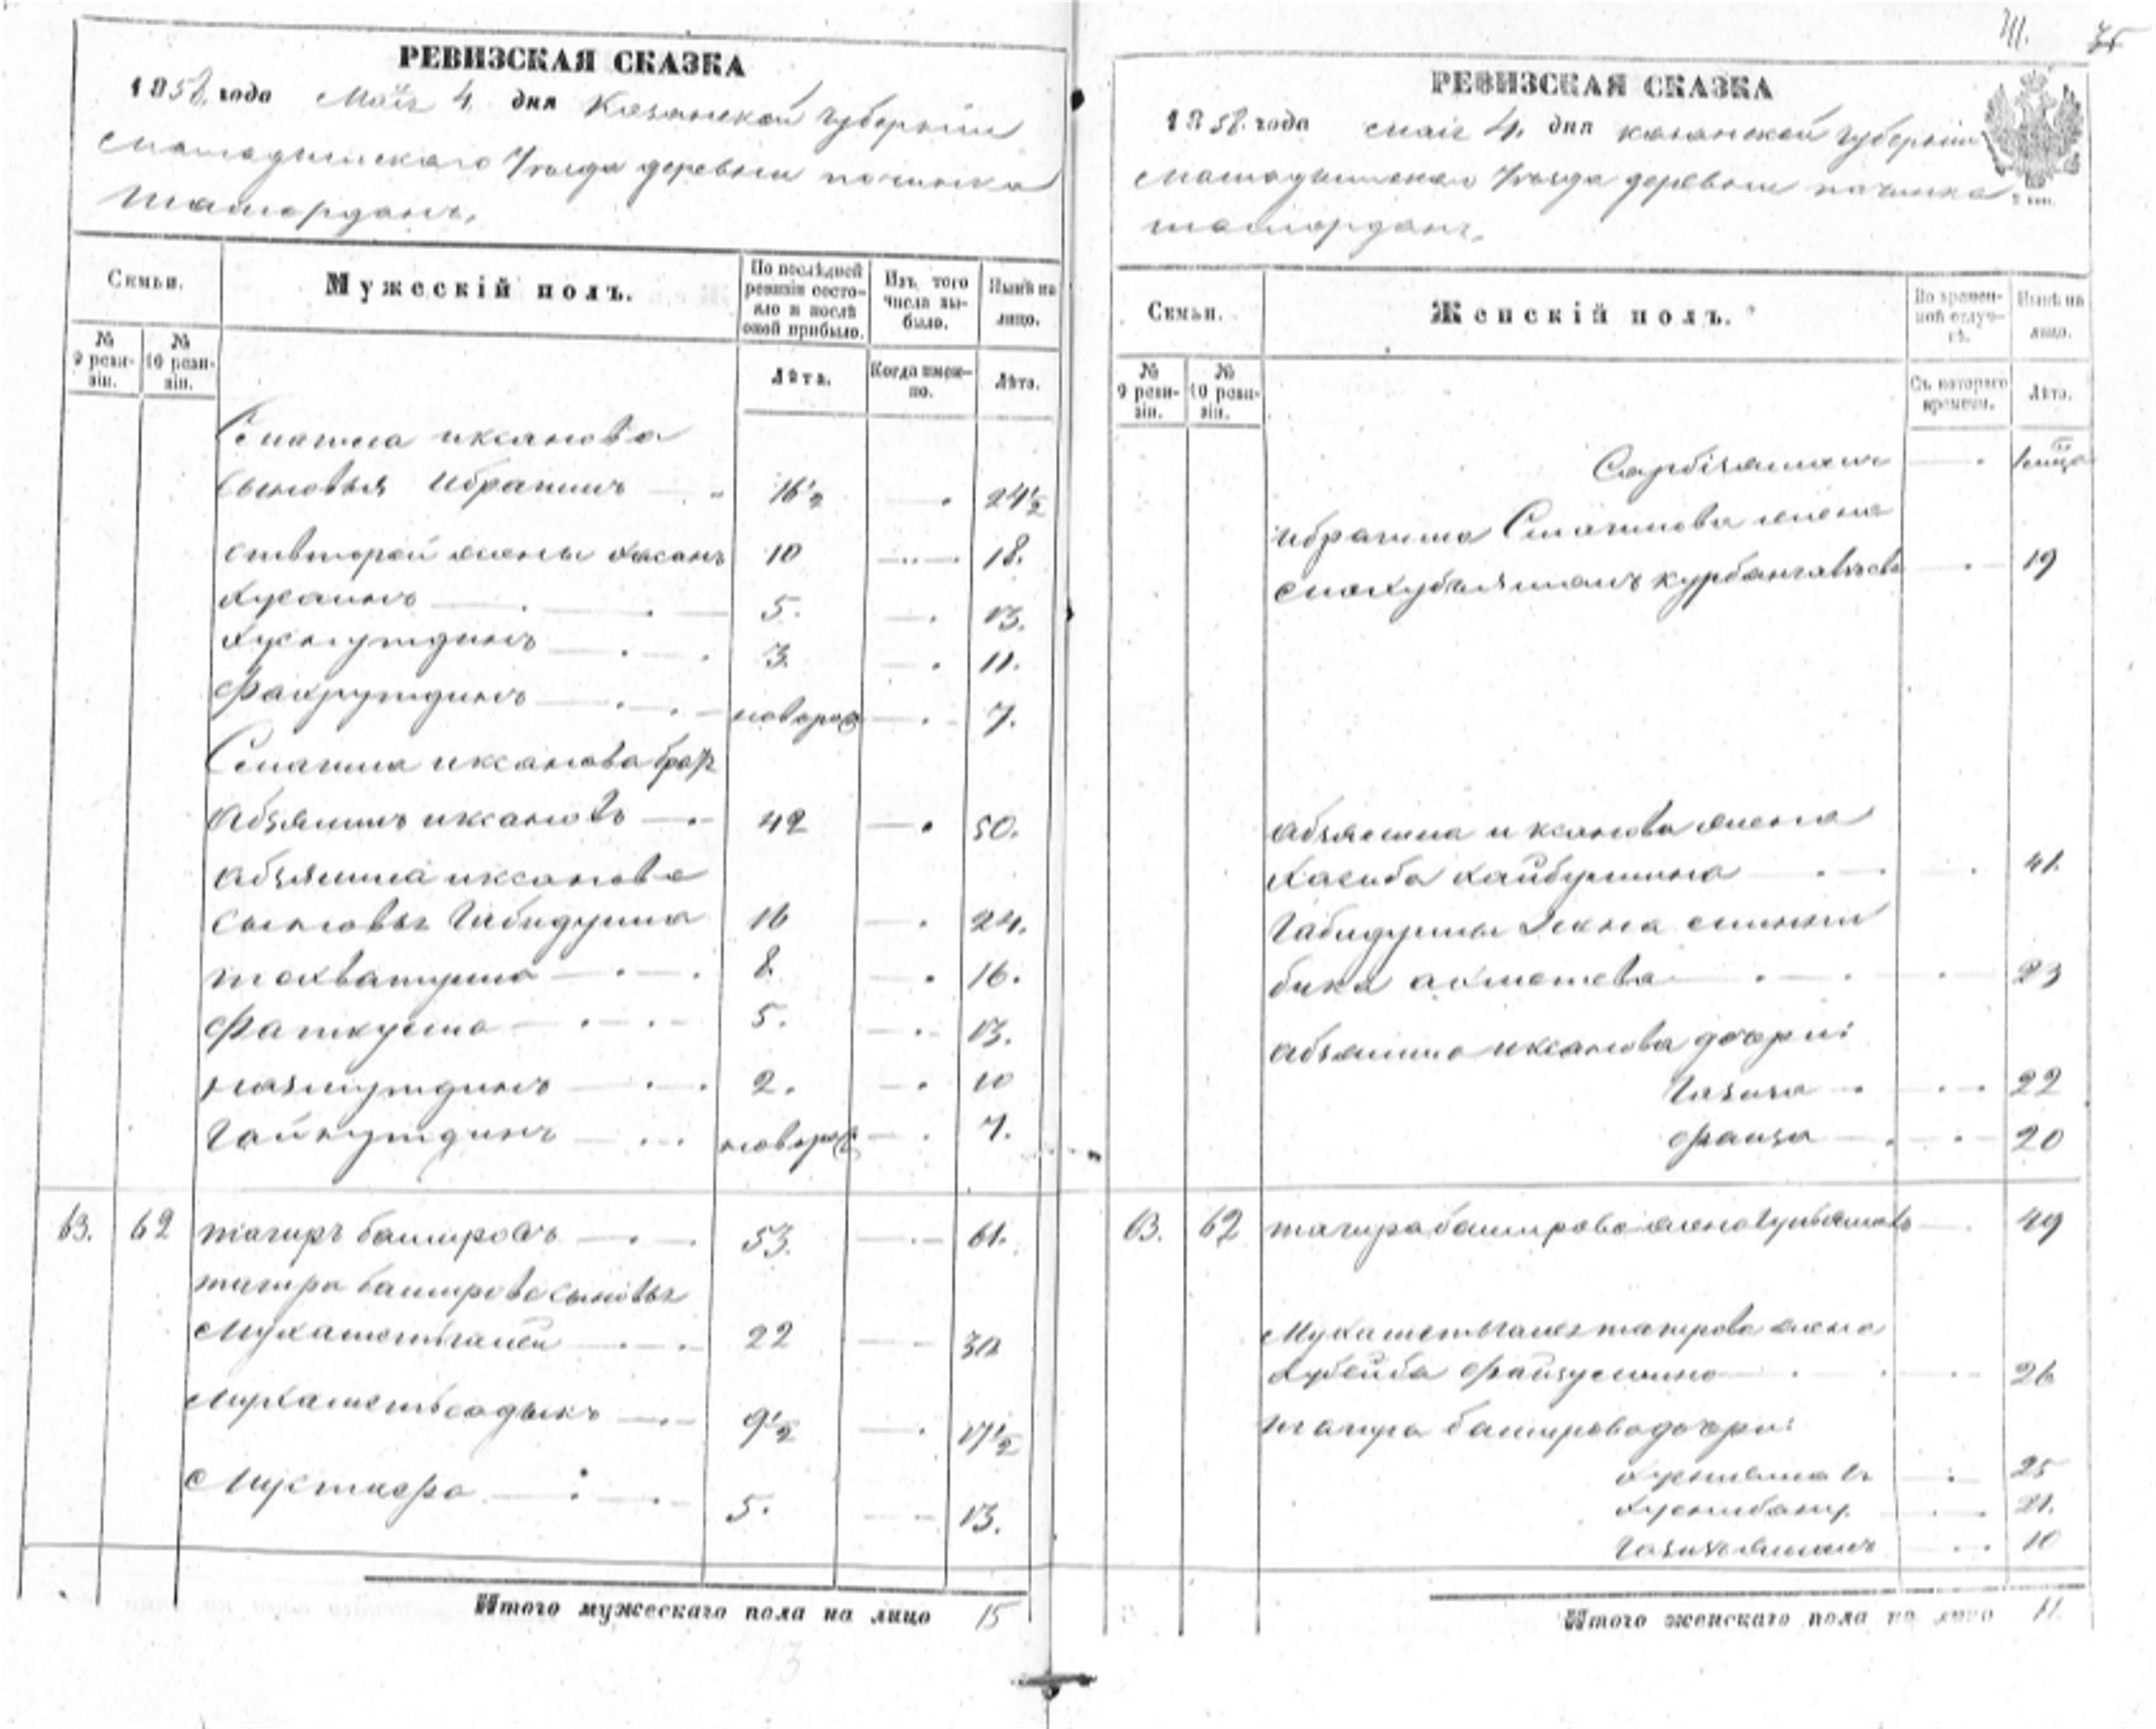 РЕВИЗСКАЯ СКАЗКА
1858. года Маія 4. дня Казанской Губерніи
Мамадышскаго Уѣзда деревни починка
Ташорданъ,
Семьи.
Мужескій полъ.
По послѣдней ревизіи состояло и послѣ оной прибыло.
Изъ того числа выбыло.
Нынѣ на лицо.
№ 9 ревизіи.
№ 10 ревизіи.
Лѣта.
Когда именно.
Лѣта.
Смагила иксанова
сыновья Ибрагимъ 16½ 24½
отвторой жены хасанъ 10 18.
хусаинъ 5. 13.
хуснутдинъ 3. 11.
Фахрутдинъ новорож 7.
Смагила иксанова братъ
Абзялилъ иксановъ 42 50.
Абзялила иксанова
сыновья Габидулла 16 24.
тохватулла 8. 16.
Фаткулла 5. 13.
назмутдинъ 2. 10
Гайнутдинъ новорож 7.
63. 62 тагиръ башировъ 53. 61.
тагира баширова сыновья
Мухаметьгалей 22 30
Мухаметьсадыкъ 9½ 17½
Мустафа 5. 13.
Итого мужескаго пола на лицо 15
75
РЕВИЗСКАЯ СКАЗКА
1858. года маія 4. дня казанской Губерніи
Мамадышскаго Уѣзда деревни починка
ташорданъ.
Семьи.
Женскій полъ.
Во временной отлучкѣ.
Нынѣ на лицо.
№ 9 ревизіи.
№ 10 ревизіи.
Съ котораго времени.
Лѣта.
Ибрагима Смагилова жена 19
Абзялила иксанова жена
хасиба хайбуллина 41.
Габидуллы жена
бика ахметева 23
Абзялила иксанова дочери:
Газиза 22
Фаиза 20
63. 62 тагира баширова жена 49
Мухаметьгалея тагирова жена
хубейба Файзуллина 26
тагира баширова дочери:
25
хуснибану. 21.
10
Итого женскаго пола на лицо 11.